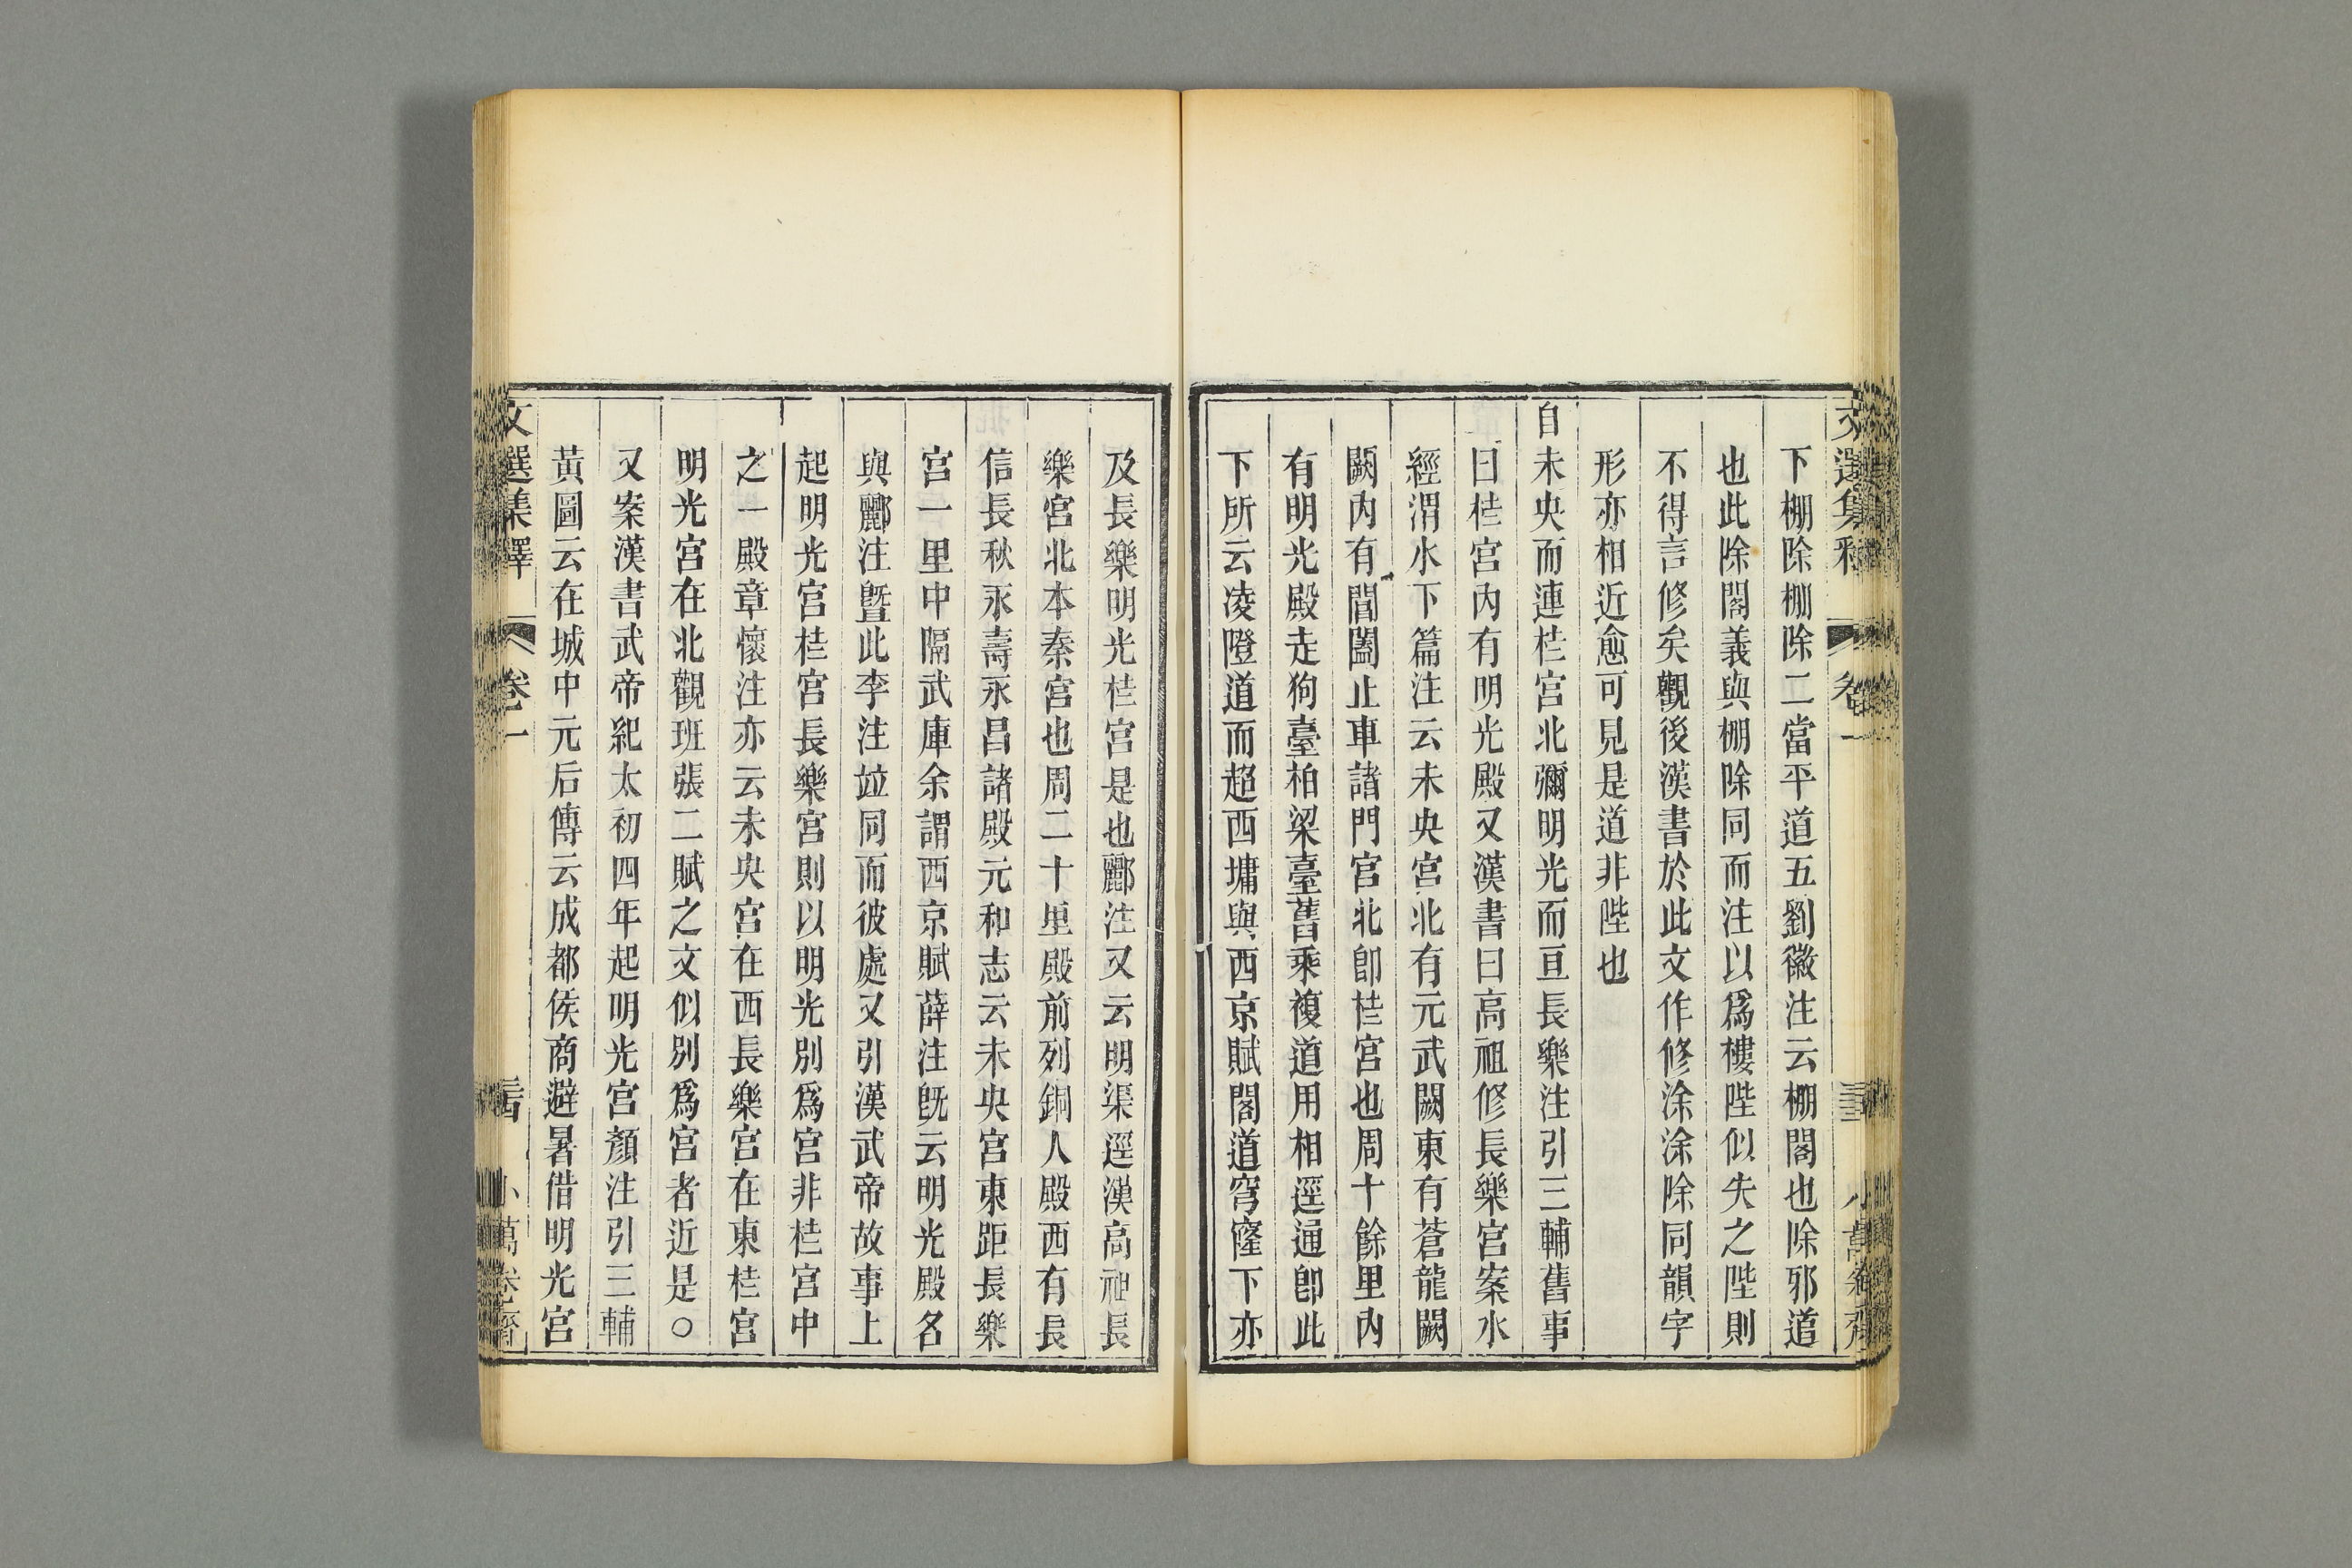 下棚除棚除二當平道五劉徽注云棚閣也除邪道
也此除閣義與棚除同而注以爲樓陛似失之陛則
不得言修矣觀後漢書於此文作修涂涂除同韻字
形亦相近愈可見是道非陛也
自未央而連桂宮北彌明光而亘長樂注引三輔舊事
曰桂宮內有明光殿又漢書曰高祖修長樂宮案水
經渭水下篇注云未央宮北有元武闕東有蒼龍闕
闕內有閶闔止車諸門宮北卽桂宮也周十餘里內
有明光殿走狗臺柏梁臺舊乘複道用相逕通卽此
下所云凌隥道而超西墉與西京賦閣道穹窿下亦
及長樂明光桂宮是也酈注又云明渠逕漢高祖長
樂宮北本秦宮也周二十里殿前列銅人殿西有長
信長秋永壽永昌諸殿元和志云未央宮東距長樂
宮一里中隔武庫余謂西京賦薛注旣云明光殿名
與酈注曁此李注竝同而彼處又引漢武帝故事上
起明光宮桂宮長樂宮則以明光別爲宮非桂宮中
之一殿章懷注亦云未央宮在西長樂宮在東桂宮
明光宮在北觀班張二賦之文似別爲宮者近是○
又案漢書武帝紀太初四年起明光宮顏注引三輔
黃圖云在城中元后傳云成都侯商避暑借明光宮
文選集釋 卷一 小萬卷齋